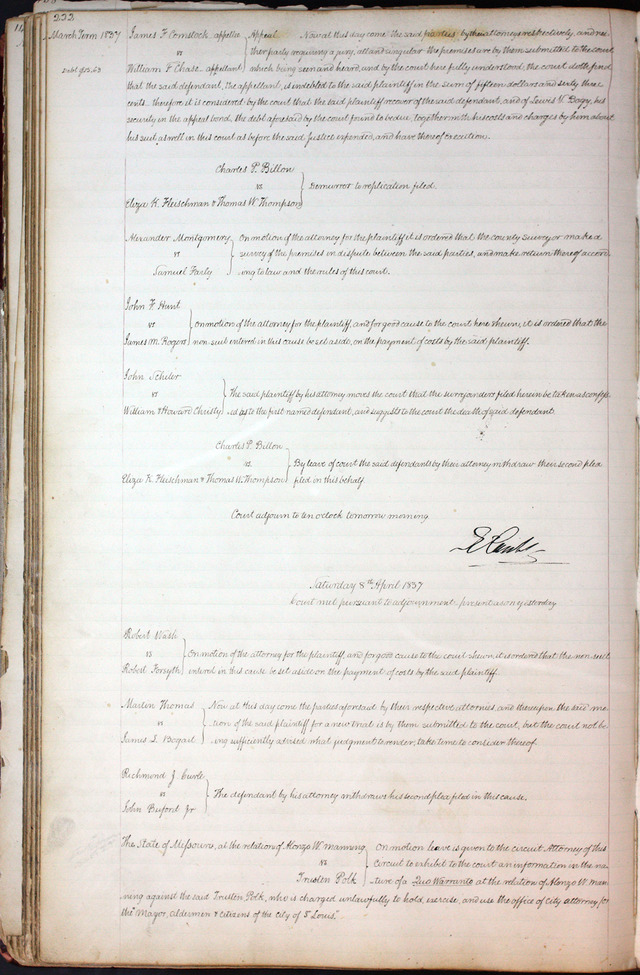 232
March Term 1837
James F Comstock, appellee
vs
William F Chase, appellant
Debt $15.63
Appeal. Now at this day come the said parties by their attorneys respectively, and nei-
ther party requiring a jury, all and singular the premises are by them submitted to the court
which being seen and heard, and by the court here fully understood, the court doth find
that the said defendant, the appellant, is indebted to the said plaintiff in the sum of fifteen dollars and sixty three
cents. therefore it is considered by the court that the said plaintiff recover of the said defendant, and of Lewis T. his
security in the appeal bond, the debt aforesaid by the court found to be due, together with his costs and charges by him about
his suit, as well in this court as before the said Justice expended, and have thereof execution.
Charles P. Billon
vs
Eliza K. Fleischman & Thomas W. Thompson
Demurrer to replication filed.
Alexander Montgomery
vs
Samuel Farly
On motion of the attorney for the plaintiff it is ordered that the county surveyor make a
survey of the premises in dispute between the said parties, and make return thereof accord
ing to law and the rules of this court.
John F. Hunt
vs
James M. Rogers
On motion of the attorney for the plaintiff, and for good cause to the court here shewn, it is ordered that the
non-suit entered in this cause be set aside, on the payment of costs by the said plaintiff.
John Schiler
vs
William & Howard Christy
The said plaintiff by his attorney moves the court that the surrejoinders filed herein be taken as confess
-ed as to the first named defendant, and suggests to the court the death of said defendant.
Charles P. Billon
vs.
Eliza K. Fleischman & Thomas W. Thompson
By leave of court the said defendants by their attorney withdraw their second plea
filed in this behalf.
Court adjourn to ten o'clock tomorrow morning
Saturday 8th April 1837
Court met pursuant to adjournment. present as on yesterday
Robert Wash
vs
Robert Forsyth
On motion of the attorney for the plaintiff, and for good cause to the court shewn, it is ordered that the non-suit
entered in this cause be set aside on the payment of costs by the said plaintiff.
Martin Thomas
vs
James L Bogart
Now at this day come the parties aforesaid by their respective attornies, and thereupon the said mo-
tion of the said plaintiff for a new trial is by them submitted to the court, but the court not be-
ing sufficiently advised what judgment to render, take time to consider thereof
Richmond J. Curle
vs
John Buford Jr
The defendant by his attorney withdraws his second plea filed in this cause.
The State of Missouri, at the relation of Alonzo W. Manning
vs
Trusten Polk
On motion leave is given to the circuit Attorney of this
Circuit to exhibit to the court an information in the na-
ture of a Quo Warranto at the relation of Alonzo W. Man-
ning against the said Trusten Polk, who is charged unlawfully to hold, exercise, and use the office of City attorney for
the "Mayor, aldermen & citizens of the City of St Louis."